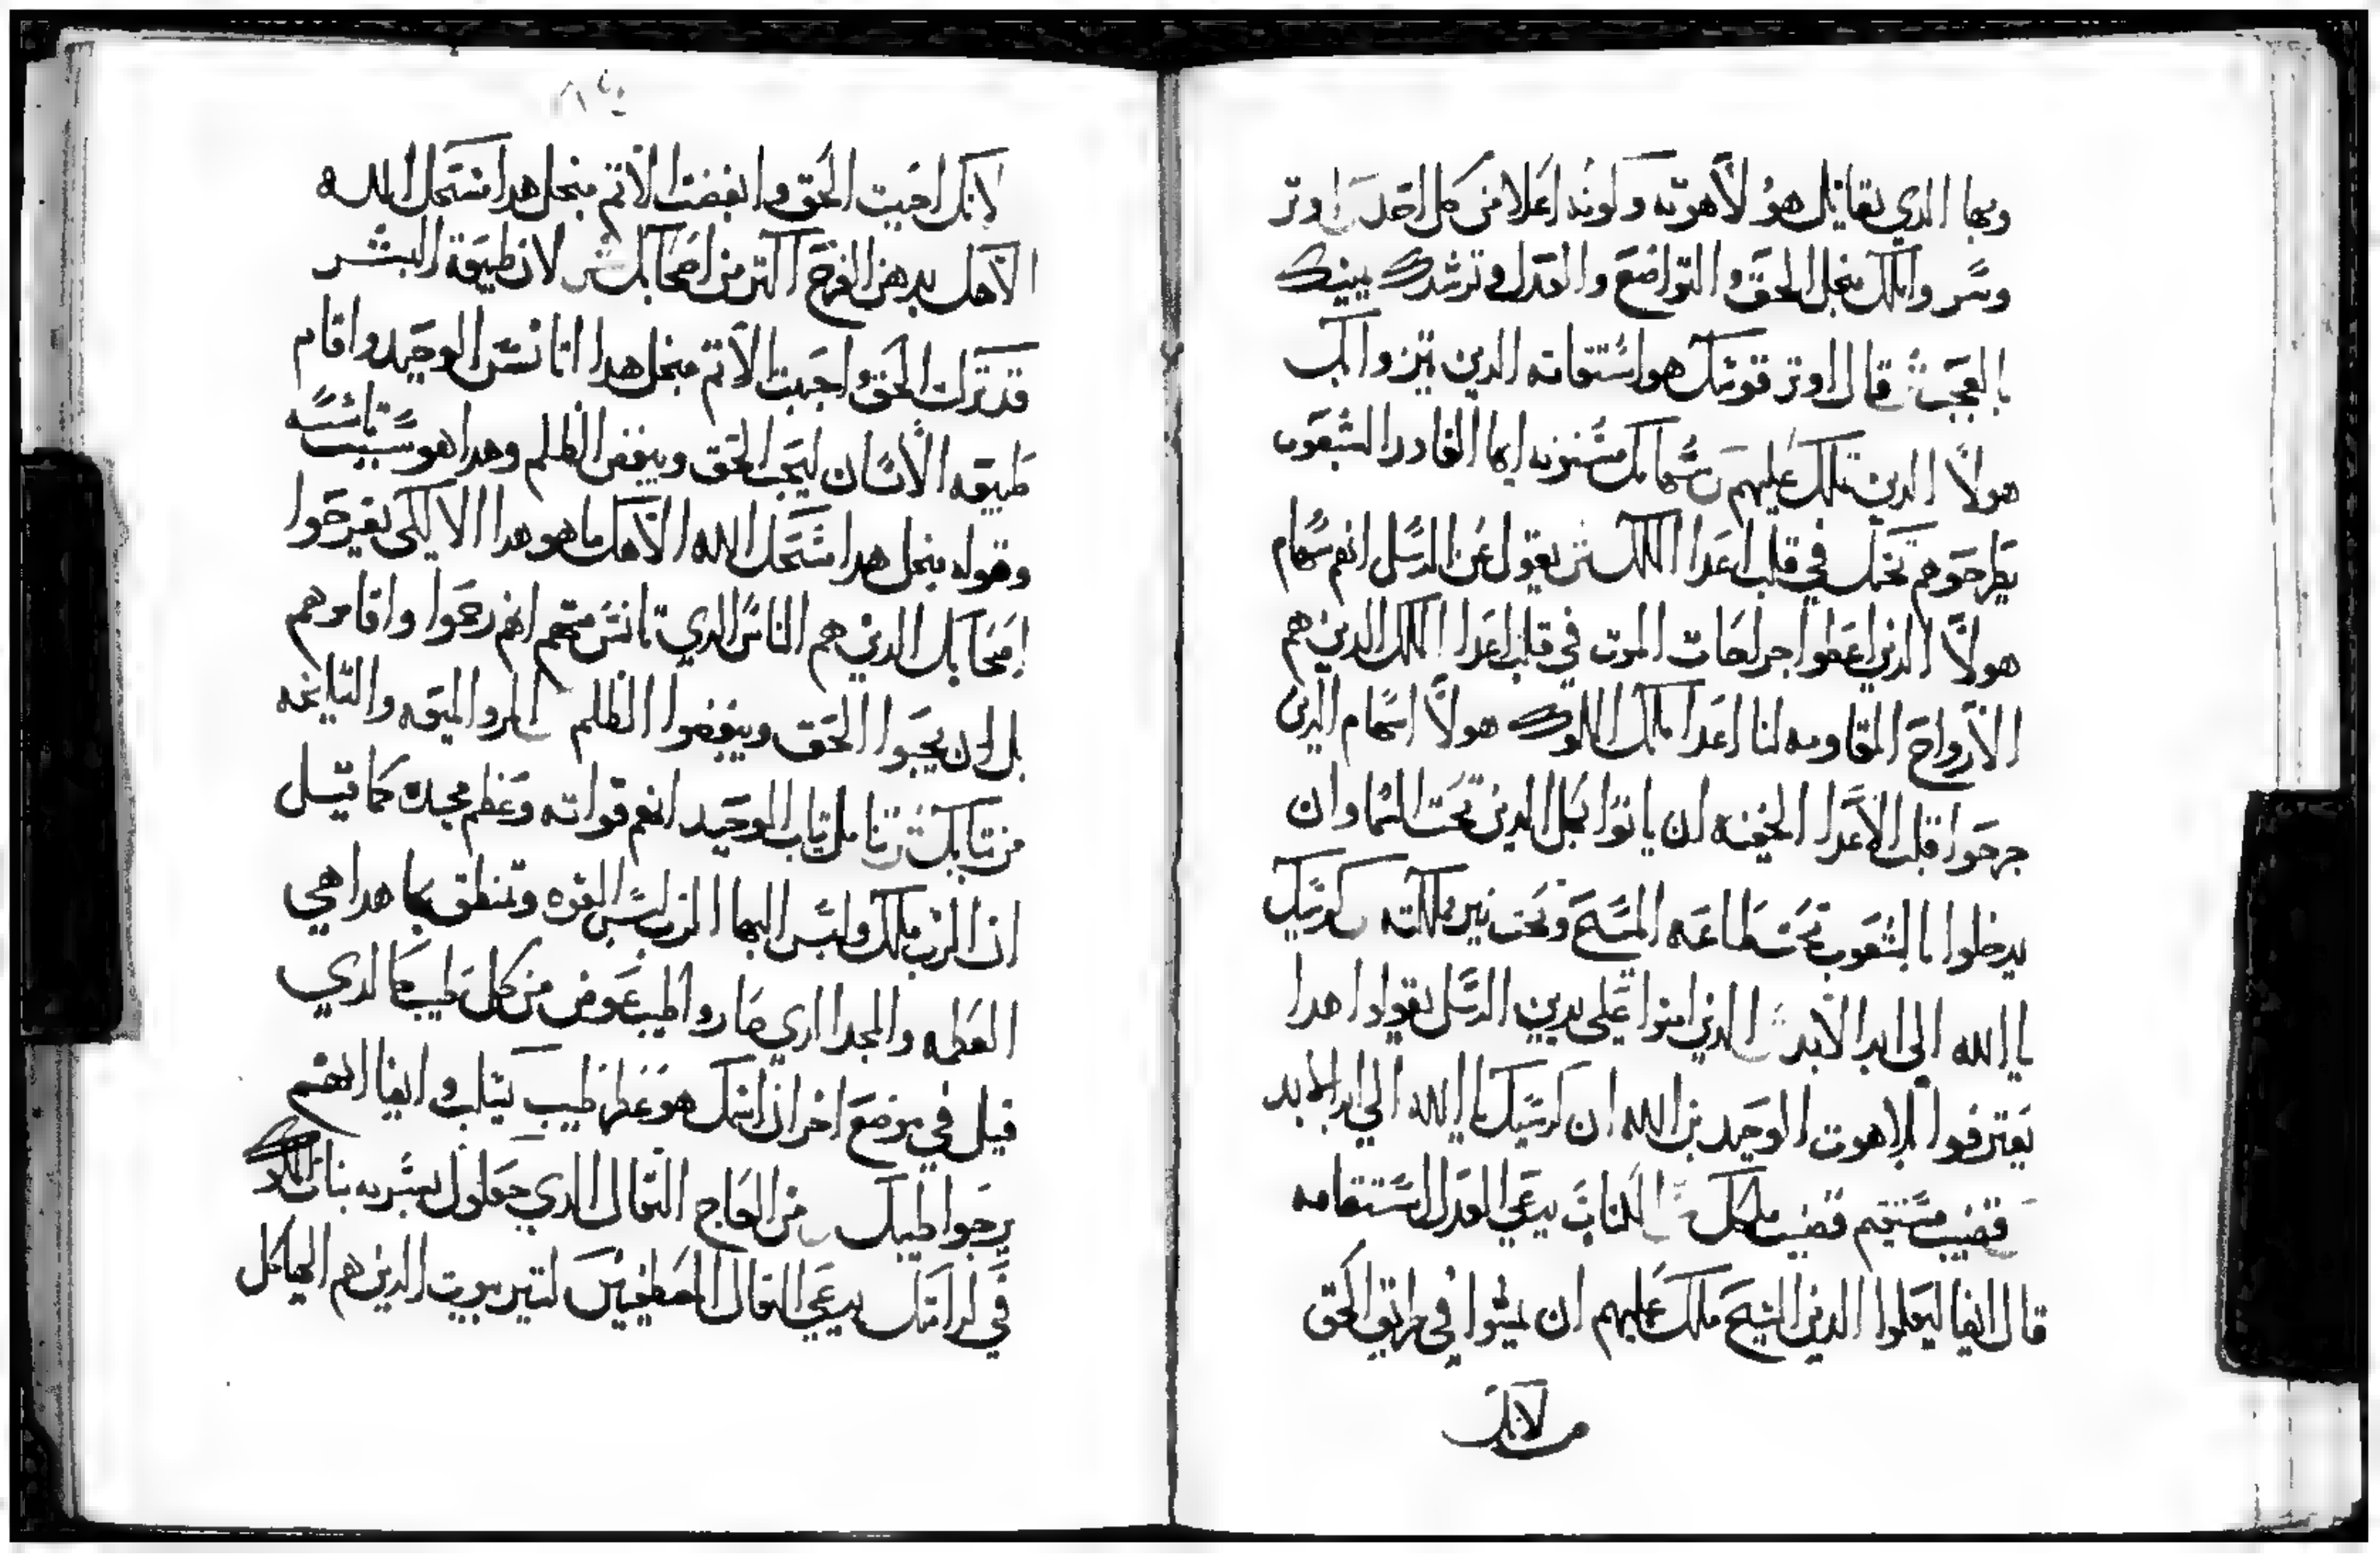 وبها الدي بقايل هو لاهوته وكونه اعلا من كل احد اوتر
وسر واملك مجل الحق والتواضع والعدل وترشدك يمينك
بالعجب قال اوتر قوسك هو استقامه الدين تيزواكب
هولا الدين تملك عليهم سهامك مسنونه ايها القادر الشعوب
يطرحوهم تحتك في قلب اعدا الملك يقول عن الرسل انهم سهام
هولا الدين اعطوا جراحات الموت في قلب اعدا الملك الدين هم
الارواح المقاومه لنا اعدا ملك الملوك هولا السهام الدين
جرحوا قلب الاعدا الخفيه ان ياتوا بكل الدين تحت السما وان
يدخلوا بالشعوب تحت طاعه المسيح وتحت نير مملكته كرسيك
يا الله الى ابد الابد الدين امنوا على يدين الرسل يقولوا هدا
يعترفوا بلاهوت الوحيد بن الله ان كرسيك يا الله الي ابد الابد
قضيب مستقيم قضيب ملكك الكتاب يدعي العدل استقامه
قال ايضا ليعلموا الدين المسيح ملك عليهم ان يمشوا في طريق الحق
لانك
لانك احببت الحق وابغضت الاتم من اجل هدا مسحك الله
الاهك بدهن الفرح اكتر من اصحابك لان طبيعة البشر
قد تركت الحق واحبت الاتم من اجل هدا اتانس الوحيد واقام
طبيعه الانسان ليحب الحق ويبغض الظلم وهدا هو سبب تانسه
وقوله من اجل هدا مسحك الله الاهك ما هو هدا الا لكي يفرحوا
اصحابك الدين هم الناس الدي تانس منهم انهم رحموا واقامهم
بل ان يحبوا الحق ويبغضوا الظلم المر والميعه والسليخه
من تيابك تياب الوحيد انهم قواته وعظم مجده كما قيل
ان الرب ملك ولبس البها الرب لبس القوه وتمنطق بها هدا هي
العظمه والمجد الدي صاروا طيب عوض من كل طيب كالدي
قيل في موضع اخر ان اسمك هو عطر طيب تيابك وايضا انهم
يرجوا طيبك من العاج التمال الدي جعلوك بشربه بنات الملوك
في كرامتك يدعي التمال المصطفيين لتير بيوت الدين هم الهياكل